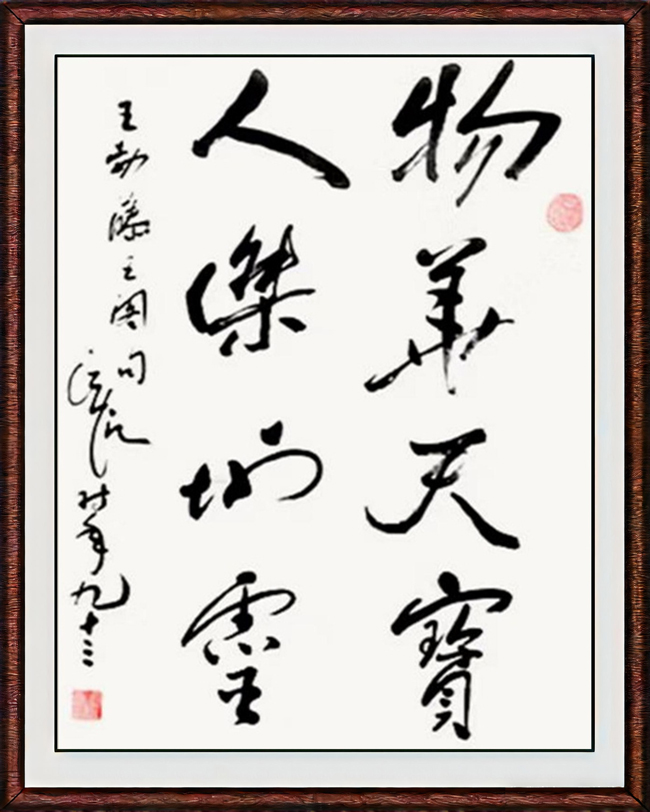 物華天寶
人傑地靈
王勃滕王阁句
时年九十三